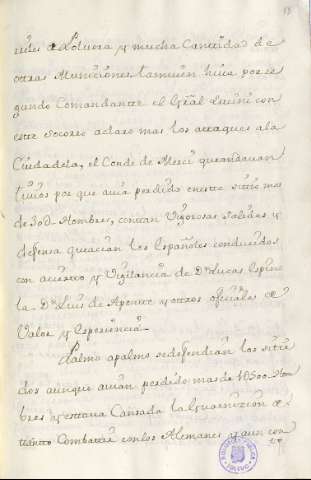 riles de Polvora y mucha Cantidad de
otras Municiones tamvien hiva por se
gundo Comandante el Gral con
este Socorro aclaro mas los attaques a la
Ciudadela, el Conde de Merci que andavan
tivios por que avia perdido en este sitio mas
de 30 Hombres, con tan Vigorosas Salidas y
defensa que acian los Españoles conducidos
con acierto y Vigilancia de Dn Lucas Espino
la Dn Luis de Aponte y otros ofiziales de
Valor y Esperiencia.
Palmo a palmo se defendian los sitia
dos aunque avian perdido mas de 10500 Hom
bres y estava Cansada la Guarnizion de
tanto Combatir con los Alemanes y aun con